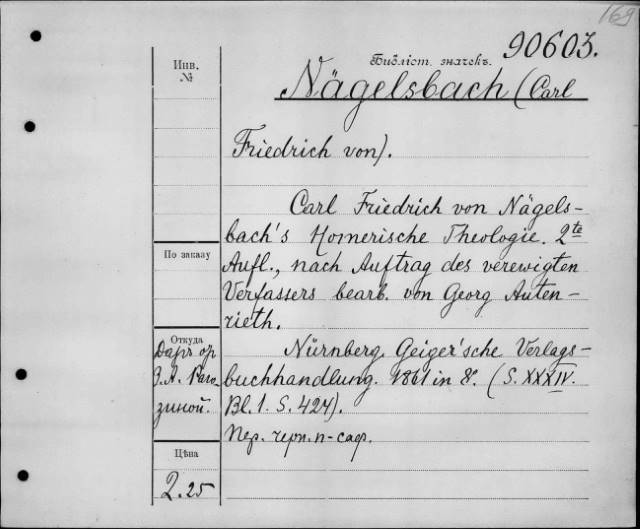 169
90603.
Библіот. значекъ.
Инв.
№
Nägelsbach (Carl
Friedrich von).
Carl Friedrich von Nägels-
bach's Homerische Theologie. 2te
По заказу
Aufl., nach Auftrag des verewigten
Verfassers bearb. von Georg Auten-
rieth.
Откуда
Даръ
З. А. Раго-
зиной.
Nürnberg. Geiger'sche Verlags-
buchhandlung. 1861 in 8°. (S. XXXIV.
Bl. 1. S. 424).
Пер. черн. п-саф.
Цѣна
2.25